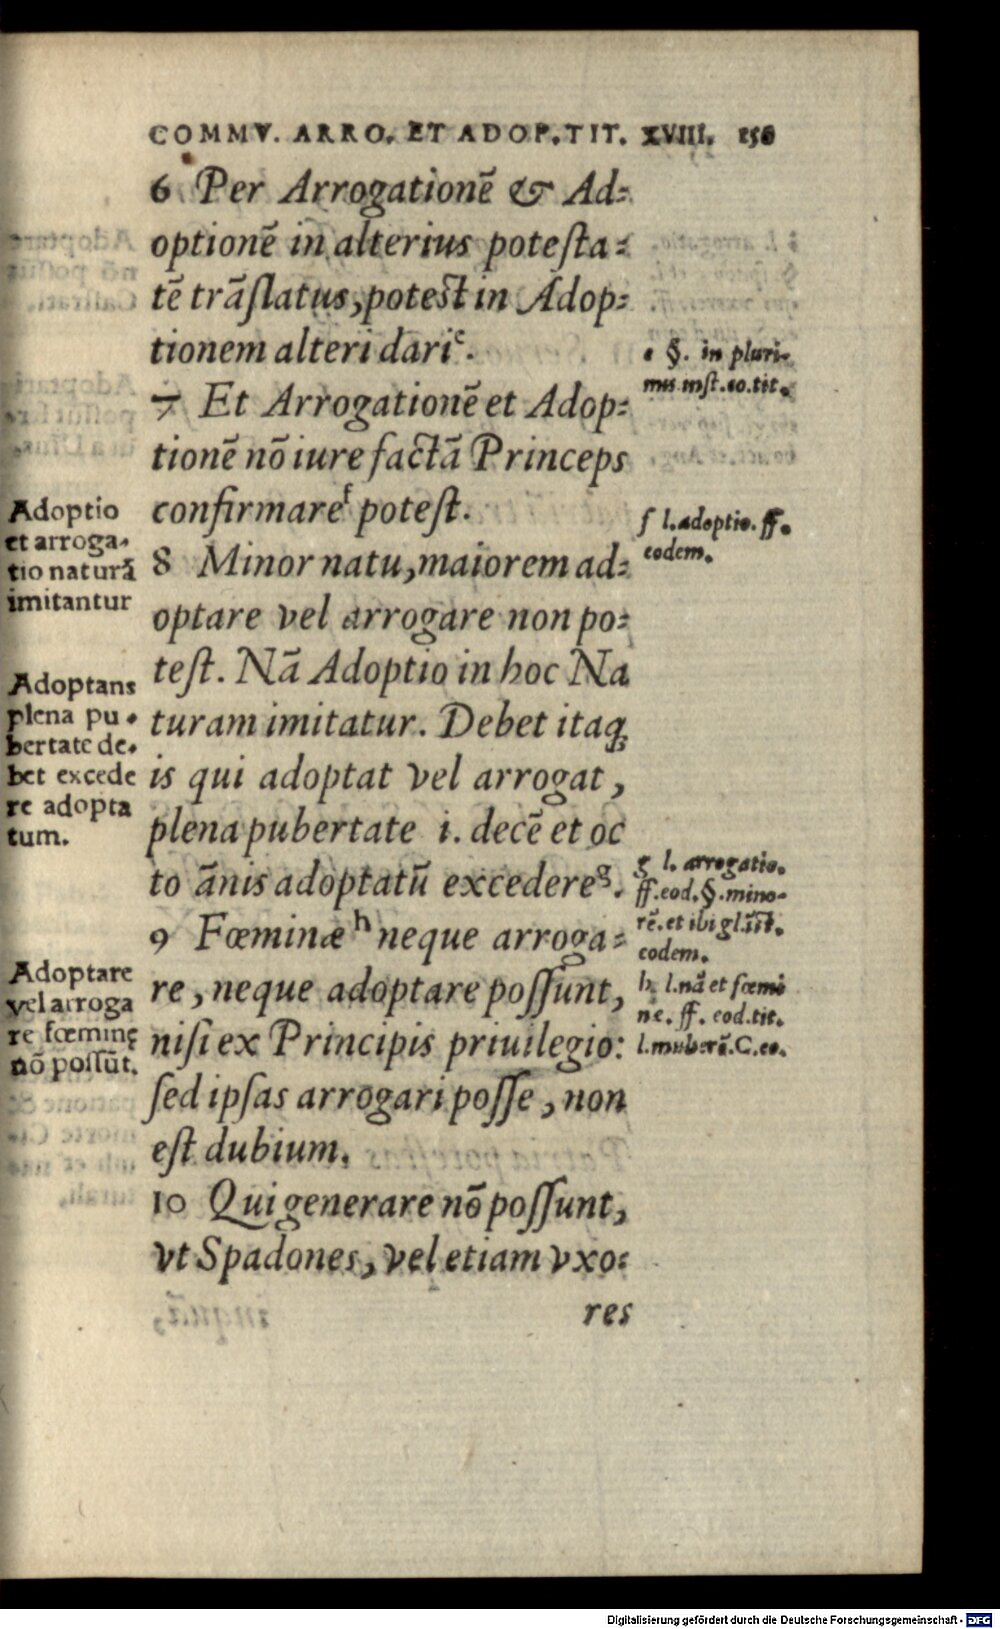 COMMV. ARRO. ET ADOP. TIT. XVIII. 156
6 Per Arrogationē & Ad-
optionē in alterius potesta-
tē trāslatus, potest in Adop-
tionem alteri dari e.
7 Et Arrogationē et Adop-
tionē nō iure factā Princeps
confirmare f potest.
8 Minor natu, maiorem ad-
optare vel arrogare non po-
test. Nā Adoptio in hoc Na
turam imitatur. Debet itaq;
is qui adoptat vel arrogat,
plena pubertate i. decē et oc
to ānis adoptatū excedere g.
9 Fœminæ h neque arroga-
re, neque adoptare possunt,
nisi ex Principis priuilegio:
sed ipsas arrogari posse, non
est dubium.
10 Qui generare nō possunt,
vt Spadones, vel etiam vxo-
res
Adoptio
et arroga-
tio naturā
imitantur
Adoptans
plena pu-
bertate de-
bet excede
re adopta
tum.
Adoptare
vel arroga
re fœminę
nō possūt.
e §. in pluri-
mis inst. eo. tit.
f l. adoptio. ff.
eodem.
g l. arrogatio.
ff. eod. §. mino-
rē. et ibi gl. īst.
eodem.
h l. nā et fœmi
ne. ff. eod. tit.
l. mulierē. C. eo.
Digitalisierung gefördert durch die Deutsche Forschungsgemeinschaft - DFG